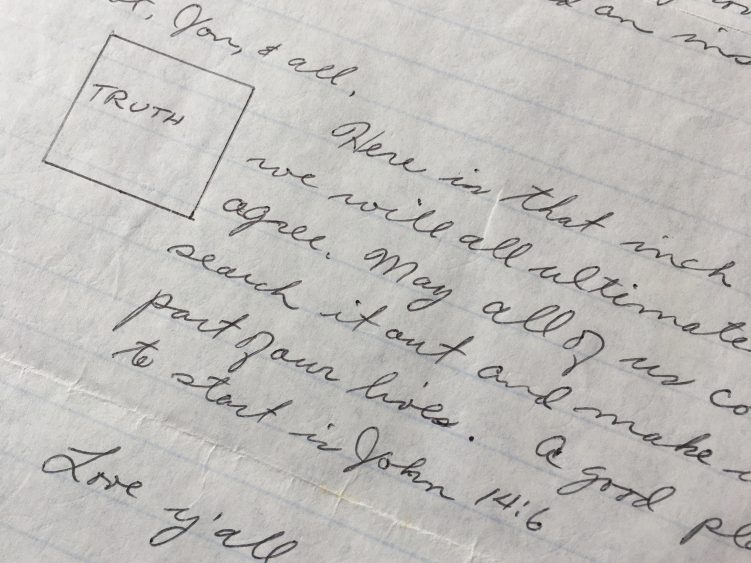 an ins
& all,
TRUTH
Here in that inch
we will all ultimate
agree. May all of us co
search it out and make
part of our lives. A good pla
to start is John 14:6
Love y'all